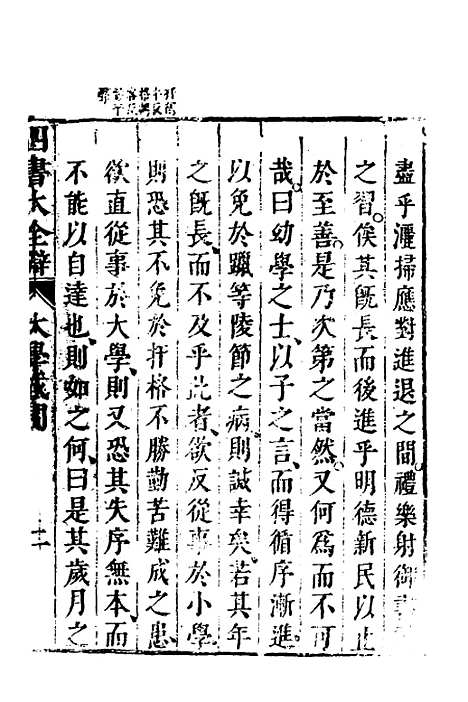 盡乎灑掃應對進退之間禮樂射御
之習俟其旣長而後進乎明德新民以止
於至善是乃次第之當然又何爲而不可
哉曰幼學之士以子之言而得循序漸進
以免於躐等陵節之病則誠幸矣若其年
之旣長而不及乎此者欲反從事於小學
則恐其不免於扞格不勝勤苦難成之患
欲直從事於大學則又恐其失序無本而
不能以自達也則如之何曰是其歲月之
四書大全辯 大學或問